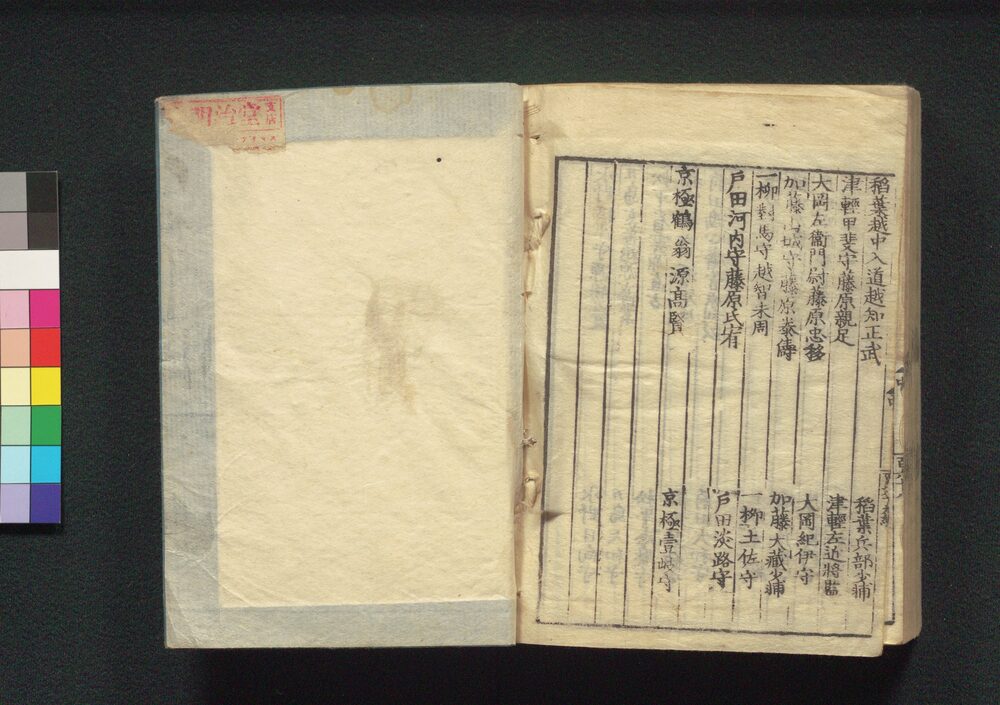 稻葉越中入道越知正武
稻葉兵部少輔
津輕甲斐守藤原親足
津輕左近將監
大岡左衞門尉藤原忠移
大岡紀伊守
加藤 守藤原泰儔
加藤大藏少輔
一柳對馬守越智末周
一柳土佐守
戸田河内守藤原氏宥
戸田淡路守
京極鶴翁源高賢
京極壹岐守
明治堂
支店